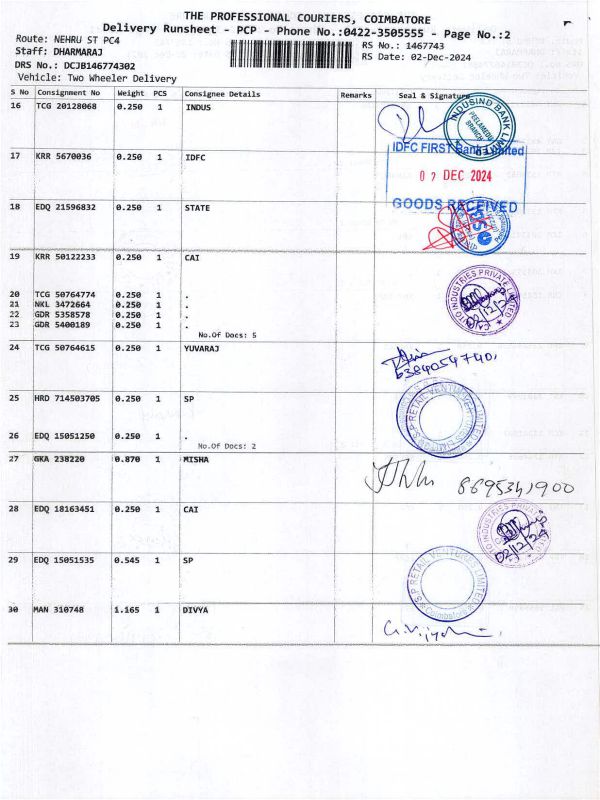 THE PROFESSIONAL COURIERS, COIMBATORE
Delivery Runsheet - PCP - Phone No.:0422-3505555 - Page No.:2
Route: NEHRU ST PC4
RS No.: 1467743
Staff: DHARMARAJ
RS Date: 02-Dec-2024
DRS No.: DCJB146774302
Vehicle: Two Wheeler Delivery
S No Consignment No Weight PCS Consignee Details Remarks Seal & Signature
16 TCG 20128068 0.250 1 INDUS
INDUSIND BANK LIMITED
PEELAMEDU BRANCH
17 KRR 5670036 0.250 1 IDFC
IDFC FIRST Bank Limited
02 DEC 2024
GOODS RECEIVED
18 EDQ 21596832 0.250 1 STATE
19 KRR 50122233 0.250 1 CAI
INDUSTRIES PRIVATE LIMITED
02/12/24
20 TCG 50764774 0.250 1 .
21 NKL 3472664 0.250 1 .
22 GDR 5358578 0.250 1 .
23 GDR 5400189 0.250 1 .
No.Of Docs: 5
24 TCG 50764615 0.250 1 YUVARAJ
6384054740
25 HRD 714503705 0.250 1 SP
SP RETAIL VENTURES LIMITED
26 EDQ 15051250 0.250 1 .
No.Of Docs: 2
27 GKA 238220 0.870 1 MISHA
8695341900
28 EDQ 18163451 0.250 1 CAI
INDUSTRIES PRIVATE
02/12/24
29 EDQ 15051535 0.545 1 SP
SP RETAIL VENTURES LIMITED
Coimbatore
30 MAN 310748 1.165 1 DIVYA